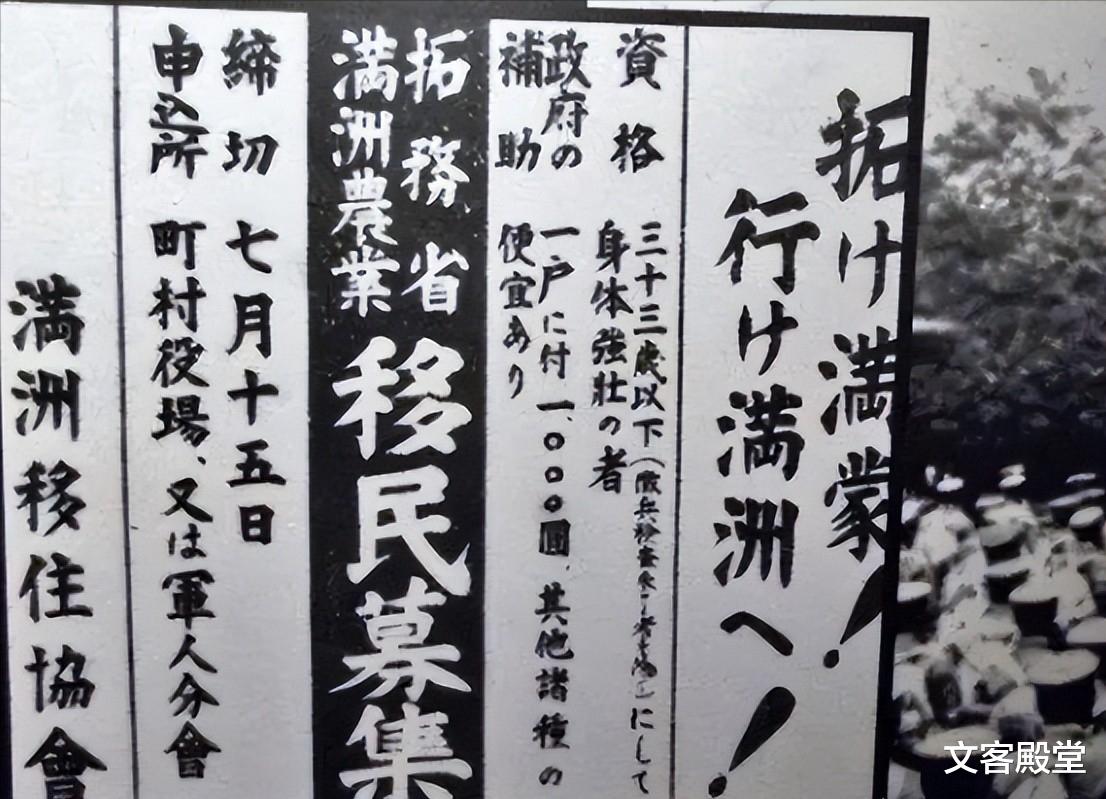 拓け満蒙!
行け満洲へ!
資格
三十三歳以下(徴兵検査未了者も可)にして
身体強壮の者
政府の
補助
一戸に付一、〇〇〇圓、其他諸種の
便宜あり
拓務省
満洲農業
移民募集
締切 七月十五日
申込所 町村役場、又は軍人分會
満洲移住協會
文客殿堂